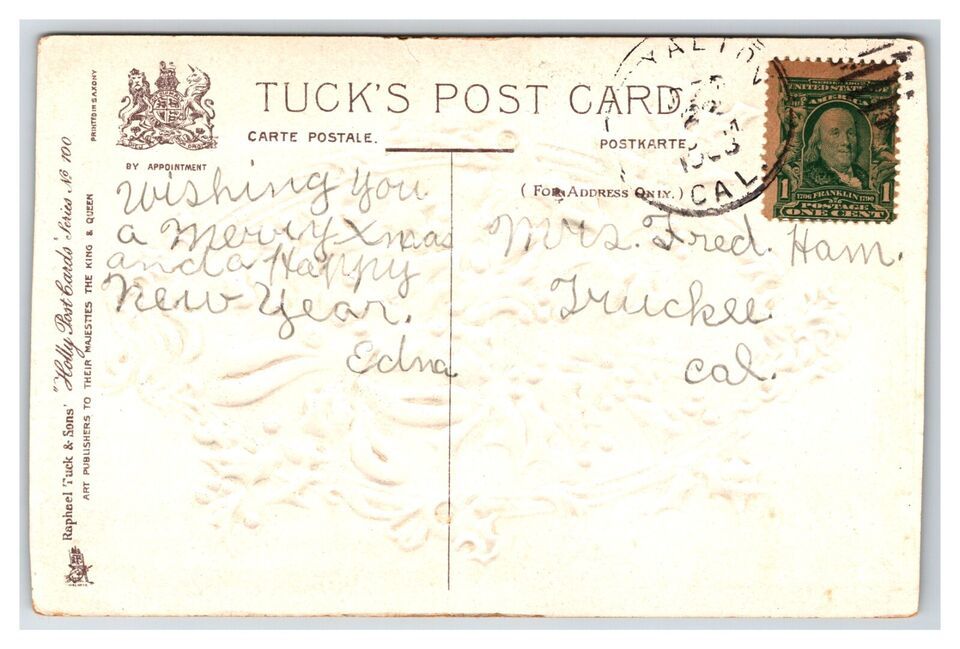 TUCK'S POST CARD
CARTE POSTALE.
POSTKARTE
BY APPOINTMENT
(FOR ADDRESS ONLY.)
PRINTED IN SAXONY
Raphael Tuck & Sons' "Holly Post Cards" Series No 100
ART PUBLISHERS TO THEIR MAJESTIES THE KING & QUEEN
Wishing You
a Merry Xmas
and a Happy
New Year.
Edna
Mrs. Fred. Ham.
Truckee
Cal.
CAL.
UNITED STATES
AMERICA
1 1
1706 FRANKLIN 1790
POSTAGE
ONE CENT